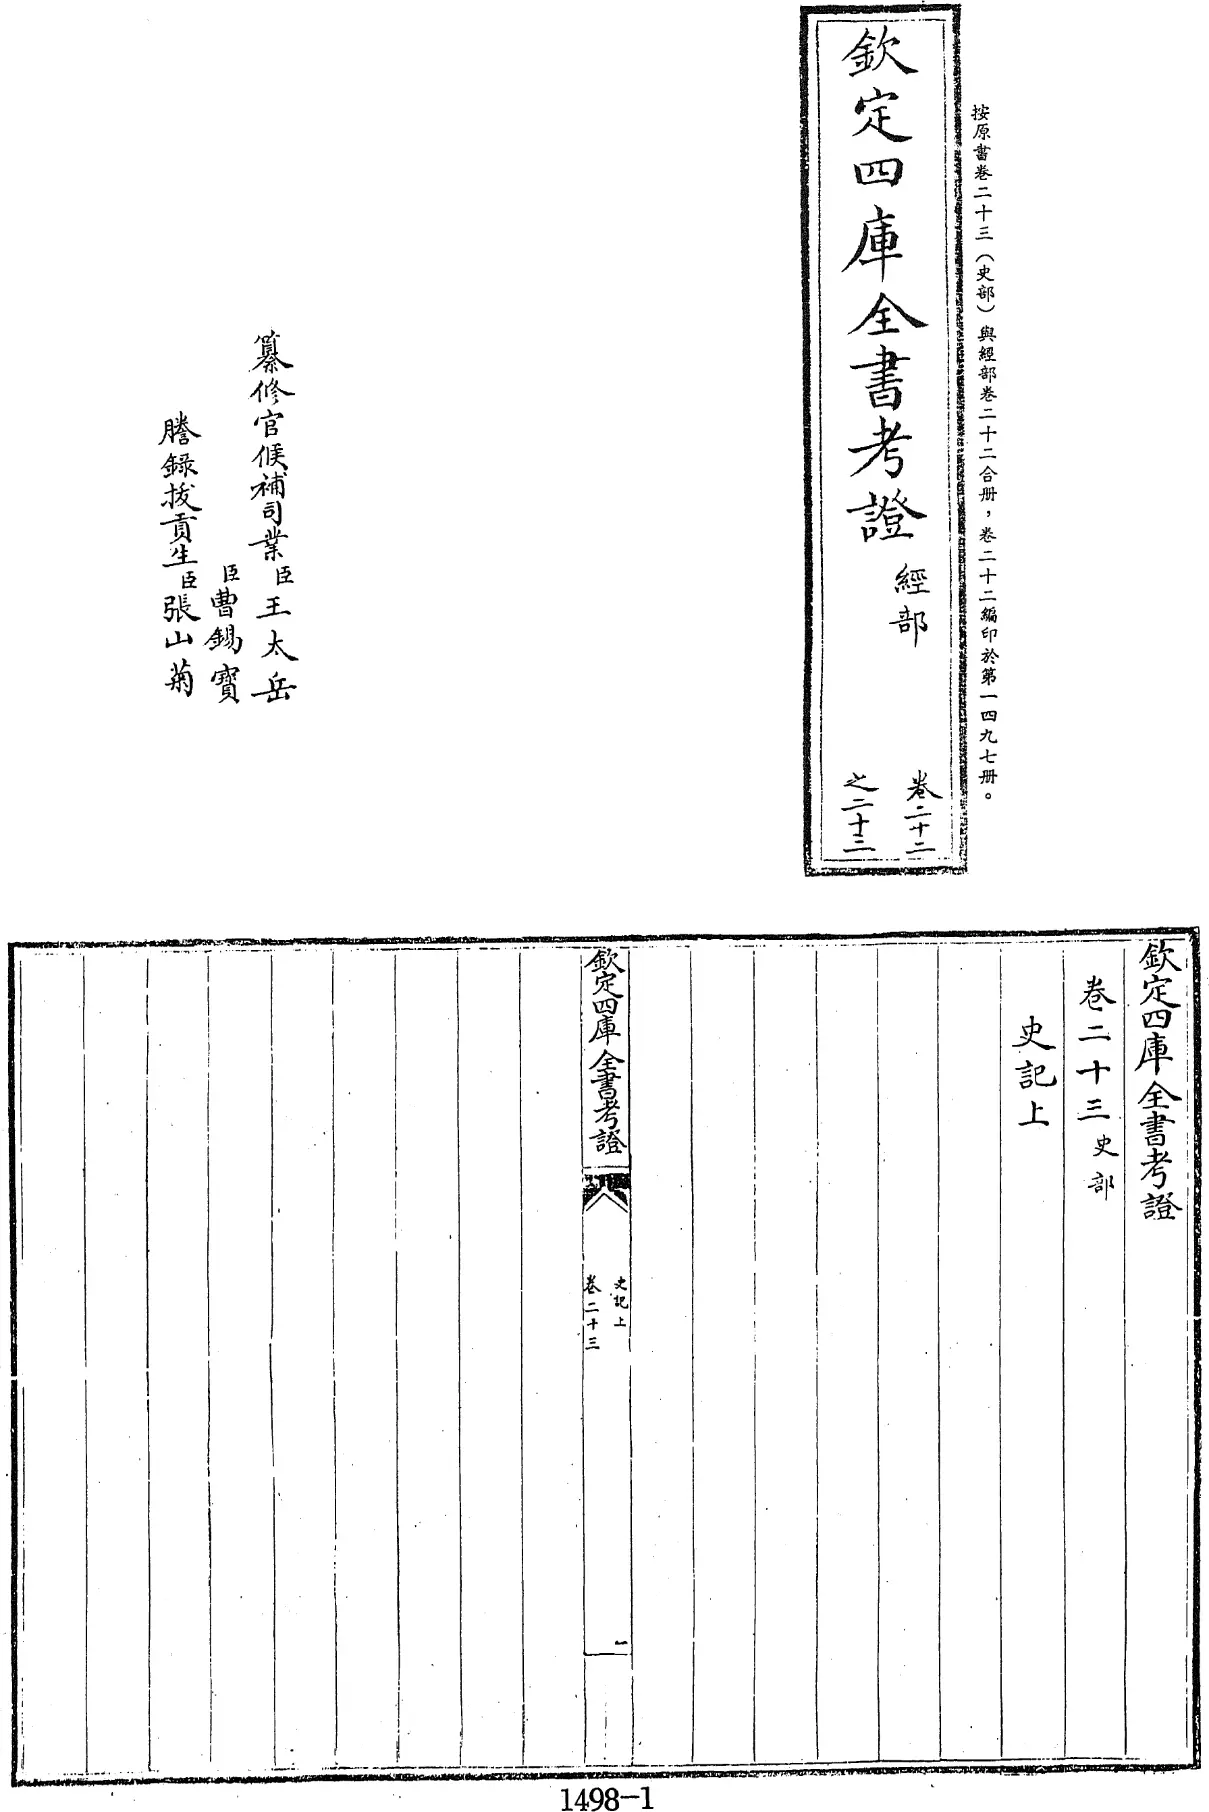 按原書卷二十三（史部）與經部卷二十二合册，卷二十二編印於第一四九七册。
欽定四庫全書考證
經部
卷二十二
之二十三
纂修官候補司業臣王太岳
臣曹錫寶
謄錄拔貢生臣張山菊
欽定四庫全書考證
卷二十三 史部
史記上
欽定四庫全書考證
史記上
卷二十三
一
1498-1